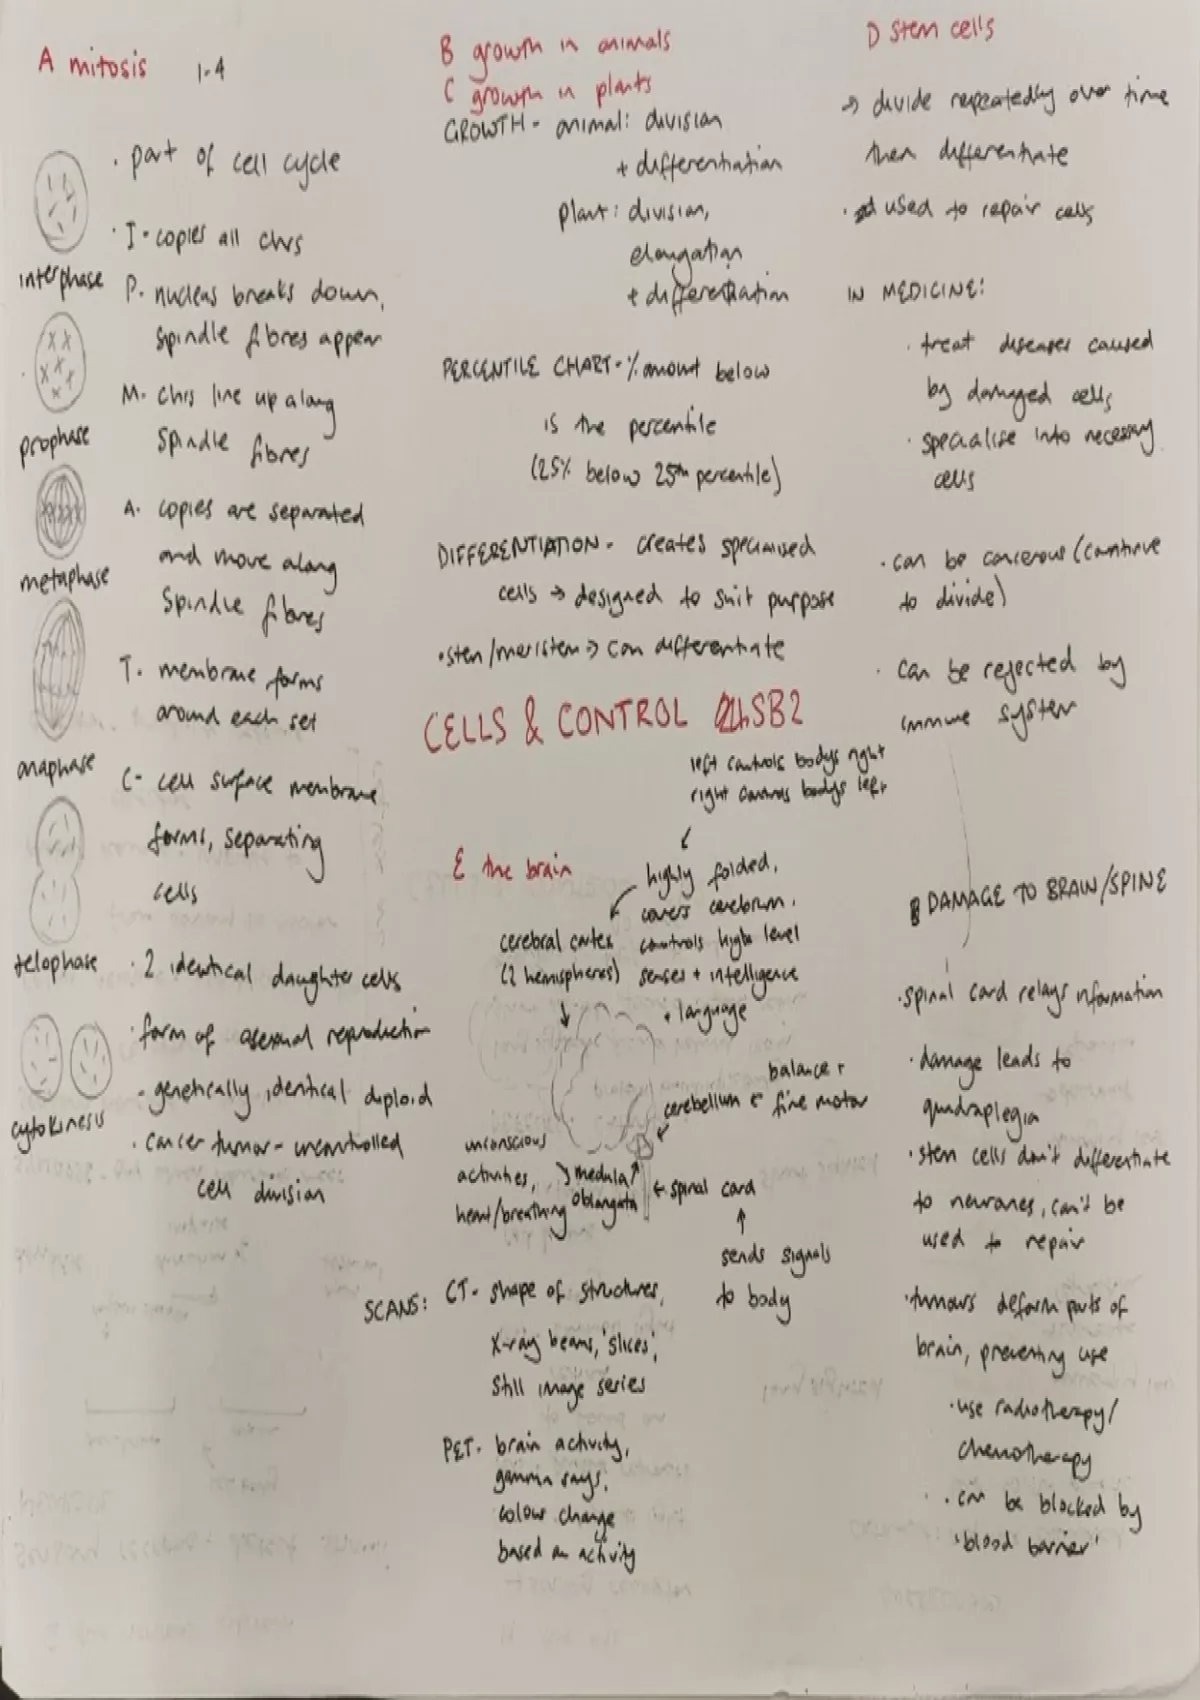 A mitosis 1-4
· part of cell cycle
· I - copies all chrs
interphase
P. nucleus breaks down,
spindle fibres appear
prophase
M. chrs line up along
spindle fibres
metaphase
A. copies are separated
and move along
spindle fibres
anaphase
T. membrane forms
around each set
C - cell surface membrane
forms, separating
cells
telophase
· 2 identical daughter cells
· form of asexual reproduction
- genetically identical diploid
cytokinesis
· cancer tumor - uncontrolled
cell division
B growth in animals
C growth in plants
GROWTH - animal: division
+ differentiation
plant: division,
elongation
+ differentiation
PERCENTILE CHART - % amount below
is the percentile
(25% below 25th percentile)
DIFFERENTIATION - creates specialised
cells → designed to suit purpose
· stem/meristem → can differentiate
CELLS & CONTROL SB2
left controls bodys right
right controls bodys left
E the brain
highly folded,
covers cerebrum.
controls high level
senses + intelligence
+ language
cerebral cortex
(2 hemispheres)
balance +
fine motor
cerebellum ←
unconscious
activities,
heart/breathing
medulla
oblongata
← spinal cord
↑
sends signals
to body
SCANS: CT - shape of structures,
X-ray beams, 'slices',
still image series
PET - brain activity,
gamma rays,
colour change
based on activity
D stem cells
→ divide repeatedly over time
then differentiate
· used to repair cells
IN MEDICINE:
· treat diseases caused
by damaged cells
· specialise into necessary
cells
· can be cancerous (continue
to divide)
· can be rejected by
immune system
DAMAGE TO BRAIN/SPINE
· spinal cord relays information
· damage leads to
quadraplegia
· stem cells don't differentiate
to neurones, can't be
used to repair
· tumours deform parts of
brain, preventing use
· use radiotherapy/
chemotherapy
· can be blocked by
'blood barrier'